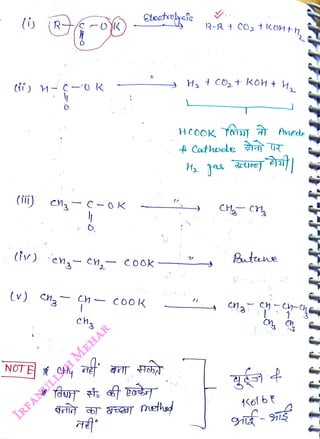 (i) R - C - O K Electrolysis → R-R + CO2 + KOH + H2
||
O
(ii) H - C - O K " → H2 + CO2 + KOH + H2
||
O
HCOOK लिया तो Anode
& Cathode दोनो पर
H2 gas उत्पन्न होगी।
(iii) CH3 - C - OK " → CH3 - CH3
||
O
(iv) CH3 - CH2 - COOK " → Butane
(v) CH3 - CH - COOK " → CH3 - CH - CH - CH3
CH3 CH3 CH3
NOTE * CH4 नहीं बना सकते
* विषम सं० की
बनाने का अच्छा method
नहीं"
वुर्ट्ज &
Kolbe
भाई - भाई
IRFANULLAH MEHAR